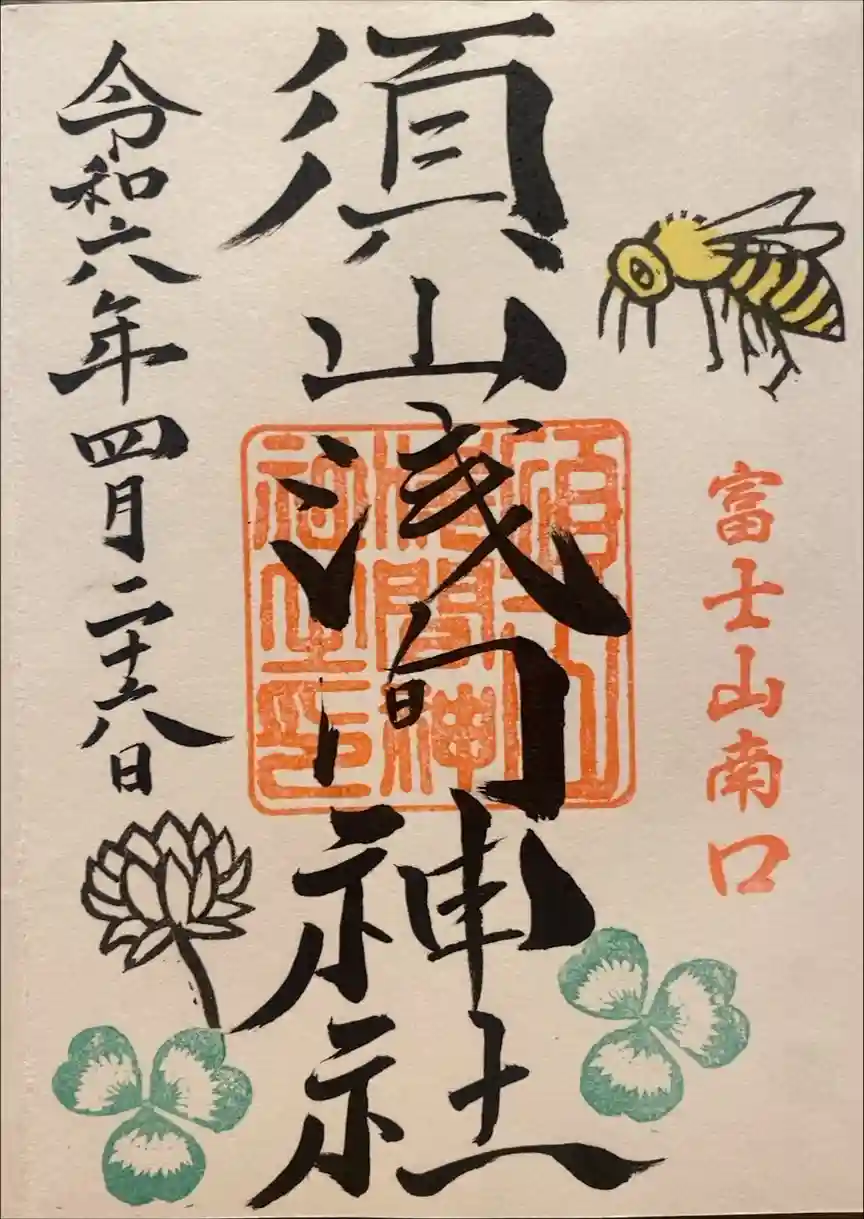 富士山南口
須山浅間神社
須山浅間神社之印
令和六年四月二十六日